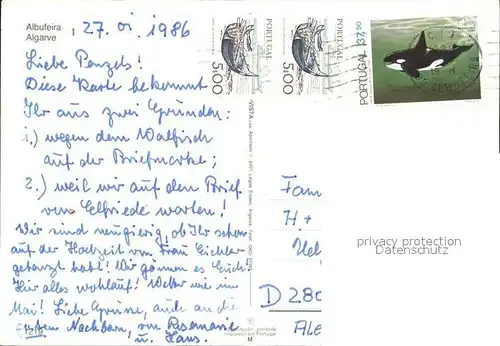 Albufeira
Algarve
27. 01. 1986
Liebe Penzels!
Diese Karte bekommt
Ihr aus zwei Gründen:
1.) wegen dem Walfisch
auf der Briefmarke;
2.) weil wir auf den Brief
von Elfriede warten!
Wir sind neugierig, ob Ihr schon
auf der Hochzeit von Frau Eichler
getanzt habt! Wir gönnen es Euch
Hier alles wohlauf! Wetter wie im
Mai! Liebe Grüsse, auch an die
guten Nachbarn, von Rosemarie
u. Hans.
1216
PORTUGAL
5.00
PORTUGAL
5.00
PORTUGAL 37,50
VISTA
Fam
H. +
D 280
privacy protection
Datenschutz
M